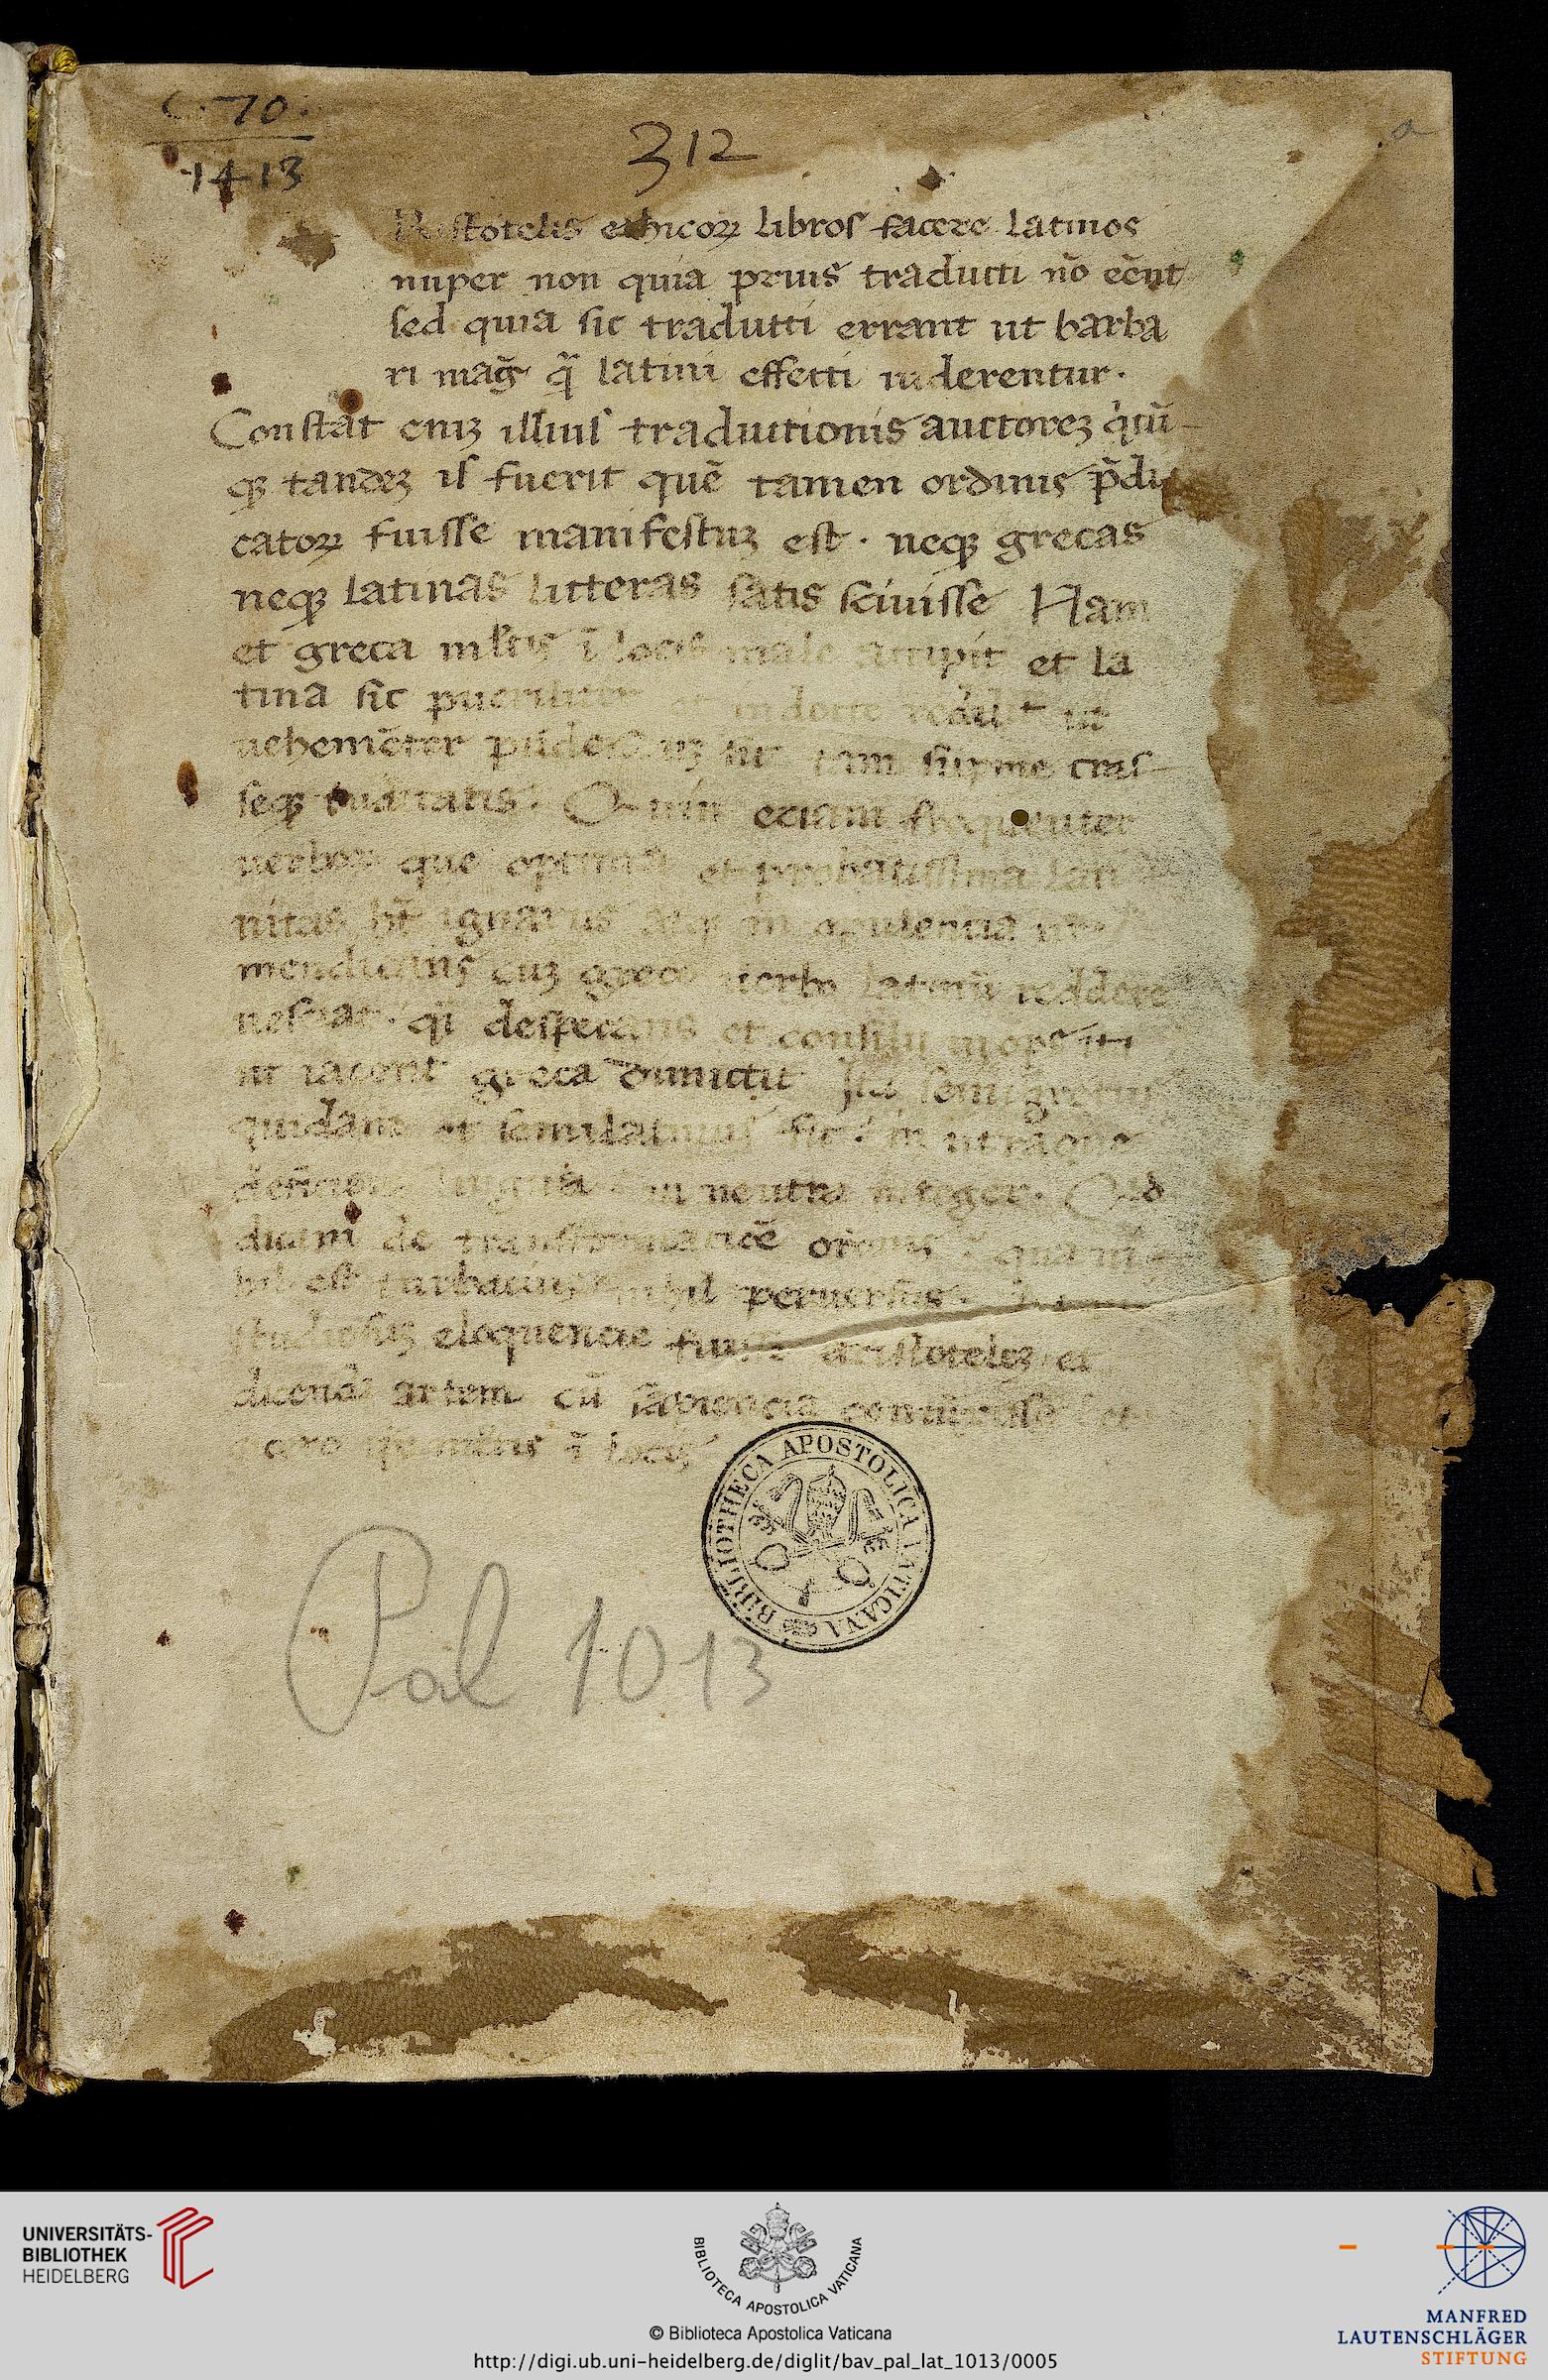 C. 70.
1413
312
a
Ristotelis ethicoꝝ libros facere latinos
nuper non quia prius traducti nō eēnt
sed quia sic traducti errant ut barba
ri mag̃ q̃ latini effecti uiderentur.
Constat eniꝫ illius traductionis auctoreꝫ q̇cū-
qꝫ tandeꝫ is fuerit quē tamen ordinis p̄di
catoꝝ fuisse manifestuꝫ est. neqꝫ grecas
neqꝫ latinas litteras satis sciuisse Nam
et greca ml̄tis ī locis male accipit et la
tina sic pueriliter et indocte ut
uehemēter sit tam supine cras
seqꝫ ruditatis. Quin eciam frequenter
uerboꝝ que optima et probatissima lati
nitas hȳ ignarus atqꝫ in opulencia
mendicans cuꝫ greco uerbo latinū reddere
nesciat. desperans et consilij inops
ut iacent greca dimittit Ita semigrecus
quidam et semilatinus fit in utraque
lingua in neutra integer. Qid
dicam de oroīnis qua ni
hil est turbacius nihil peruersius.
studiosuꝫ eloquencie fuisse aristoteleꝫ et
dicendi artem cū sapiencia
cicero ī locis
BIBLIOTHECA APOSTOLICA VATICANA
Pal 1013
UNIVERSITÄTS-
BIBLIOTHEK
HEIDELBERG
BIBLIOTECA APOSTOLICA VATICANA
© Biblioteca Apostolica Vaticana
http://digi.ub.uni-heidelberg.de/diglit/bav_pal_lat_1013/0005
MANFRED
LAUTENSCHLÄGER
STIFTUNG